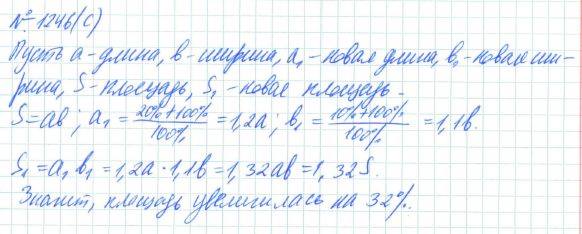 № 1246(с)
Пусть а-длина, в-ширина, а₁-новая длина, в₁-новая ши-
рина, S-площадь, S₁-новая площадь.
S=ав; а₁ = (20%+100%)/100% = 1,2а; в₁ = (10%+100%)/100% = 1,1в.
S₁=а₁в₁=1,2а·1,1в=1,32ав=1,32S.
Значит, площадь увеличилась на 32%.